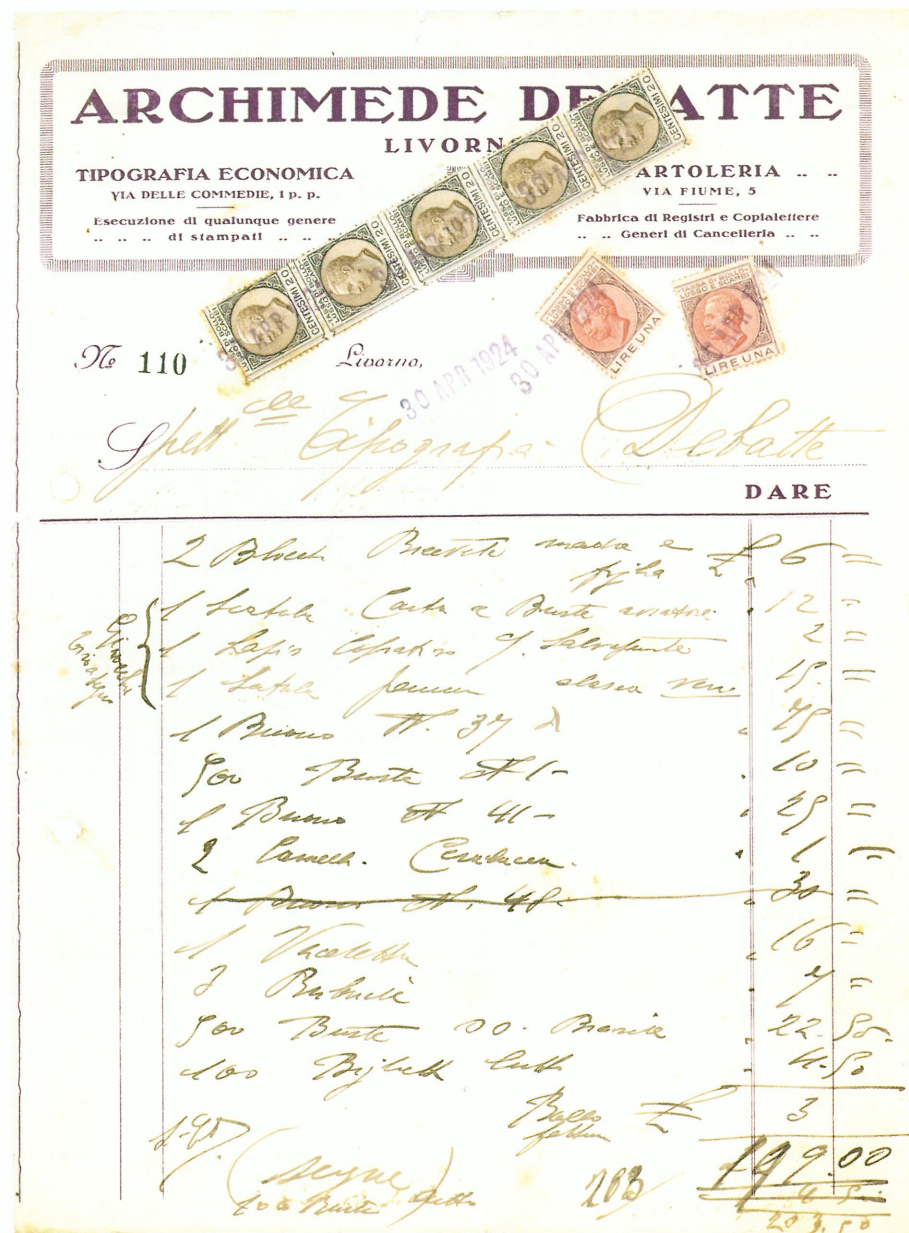 ARCHIMEDE DE ATTE
LIVORN
TIPOGRAFIA ECONOMICA
VIA DELLE COMMEDIE, 1 p. p.
Esecuzione di qualunque genere
.. .. .. di stampati .. ..
ARTOLERIA .. ..
VIA FIUME, 5
Fabbrica di Registri e Copialettere
.. .. Generi di Cancelleria .. ..
CENTESIMI 20
CENTESIMI 20
CENTESIMI 20
CENTESIMI 20
CENTESIMI 20
LIRE UNA
LIRE UNA
No 110
Livorno,
30 APR 1924
30 APR
Spett le Tipografia Debatte
DARE
2 Blocchi Ricevute madre e
figlia £ 6 =
1 Scatola Carta e Buste 12 =
1 Lapis Copiativo c/ Salvapunte 2 =
1 Scatola 15. =
1 Buono N. 37 75 =
500 Buste N 1 - 10 =
1 Buono N 41 - 25 =
2 1 =
1 Buono N. 48 - 30 =
1 Vacchetta 16 =
7 =
500 Buste 00. 22. 50.
100 Bigliett lutto 4. 50
Bollo £ 3
fattura
199.00
(segue)
100 Buste lutto
203
4 5
203.50